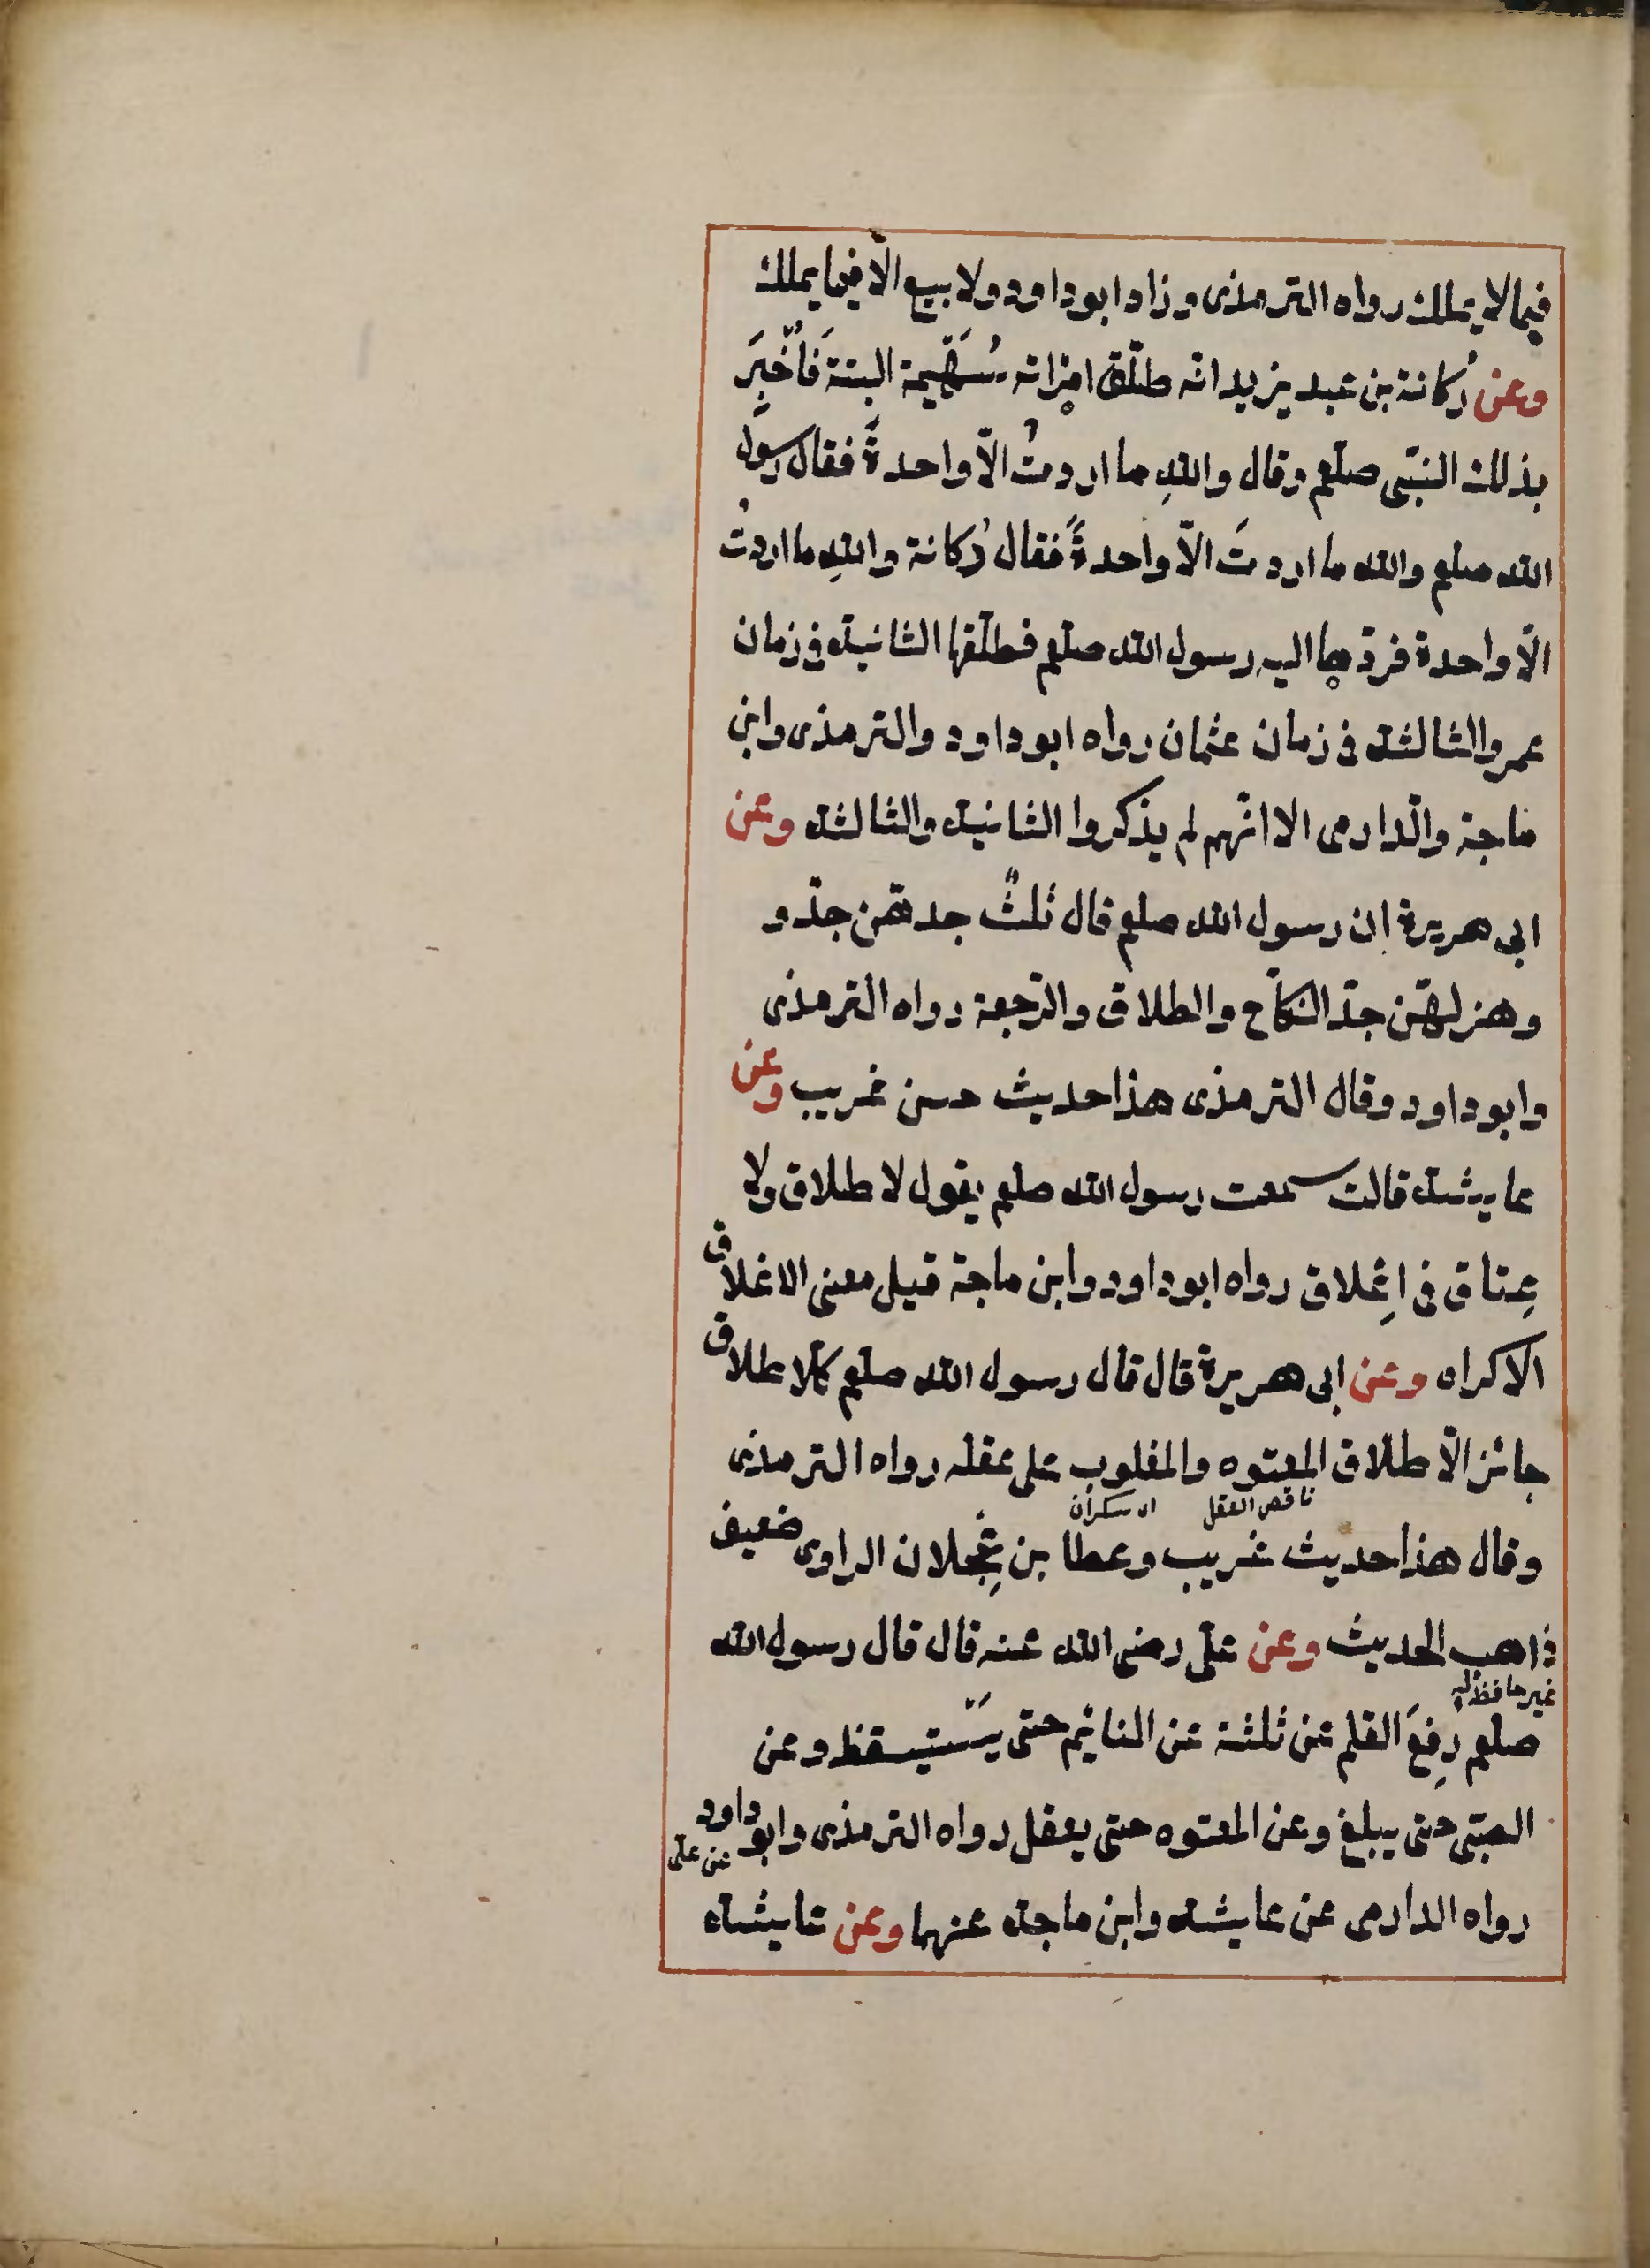 فيما لا يملك رواه الترمذى وزاد ابو داود ولا بيع الّا فيما يملك
وعن رُكانة بن عبد يزيد انّه طلّق امراته سُهَيّمة البتةَ فاُخْبِرَ
بذلك النّبىّ صلعم وقال واللهِ ما اردتُ الّا واحدةً فقال رسول
الله صلعم والله ما اردتَ الّا واحدةً فقال رُكانة واللهِ ما اردتُ
الّا واحدة فردّها اليه رسول الله صلعم فطلّقها الثانية فى زمان
عمر والثالثة فى زمان عثمان رواه ابو داود والترمذى وابن
ماجة والدّارمى الا انّهم لم يذكروا الثانية والثالثة وعن
ابى هريرة ان رسول الله صلعم قال ثلثٌ جدهّن جدّ و
وهزلهّن جدّ النّكاح والطلاق والرّجعة رواه الترمذى
وابو داود وقال الترمذى هذا حديث حسن غريب وعن
عايشة قالت سمعت رسول الله صلعم يقول لا طلاق ولا
عِتاق فى اِغلاق رواه ابو داود وابن ماجة قيل معنى الاغلاق
الاكراه وعن ابى هريرة قال قال رسول الله صلعم كلّ طلاق
جائز الّا طلاق المعتوه والمغلوب على عقله رواه الترمذى
ناقص العقل اى سكران
وقال هذا حديث غريب وعطا بن عجلان الراوى ضعيف
ذاهب الحديث وعن علىّ رضى الله عنه قال قال رسول الله
غير حافظ له
صلعم رُفِعَ القلم عن ثلثة عن النايم حتى يستيقظ وعن
الصبىّ حتى يبلغ وعن المعتوه حتى يعقل رواه الترمذى وابو داود
عن علىّ
رواه الدارمى عن عايشة وابن ماجة عنهما وعن عايشة